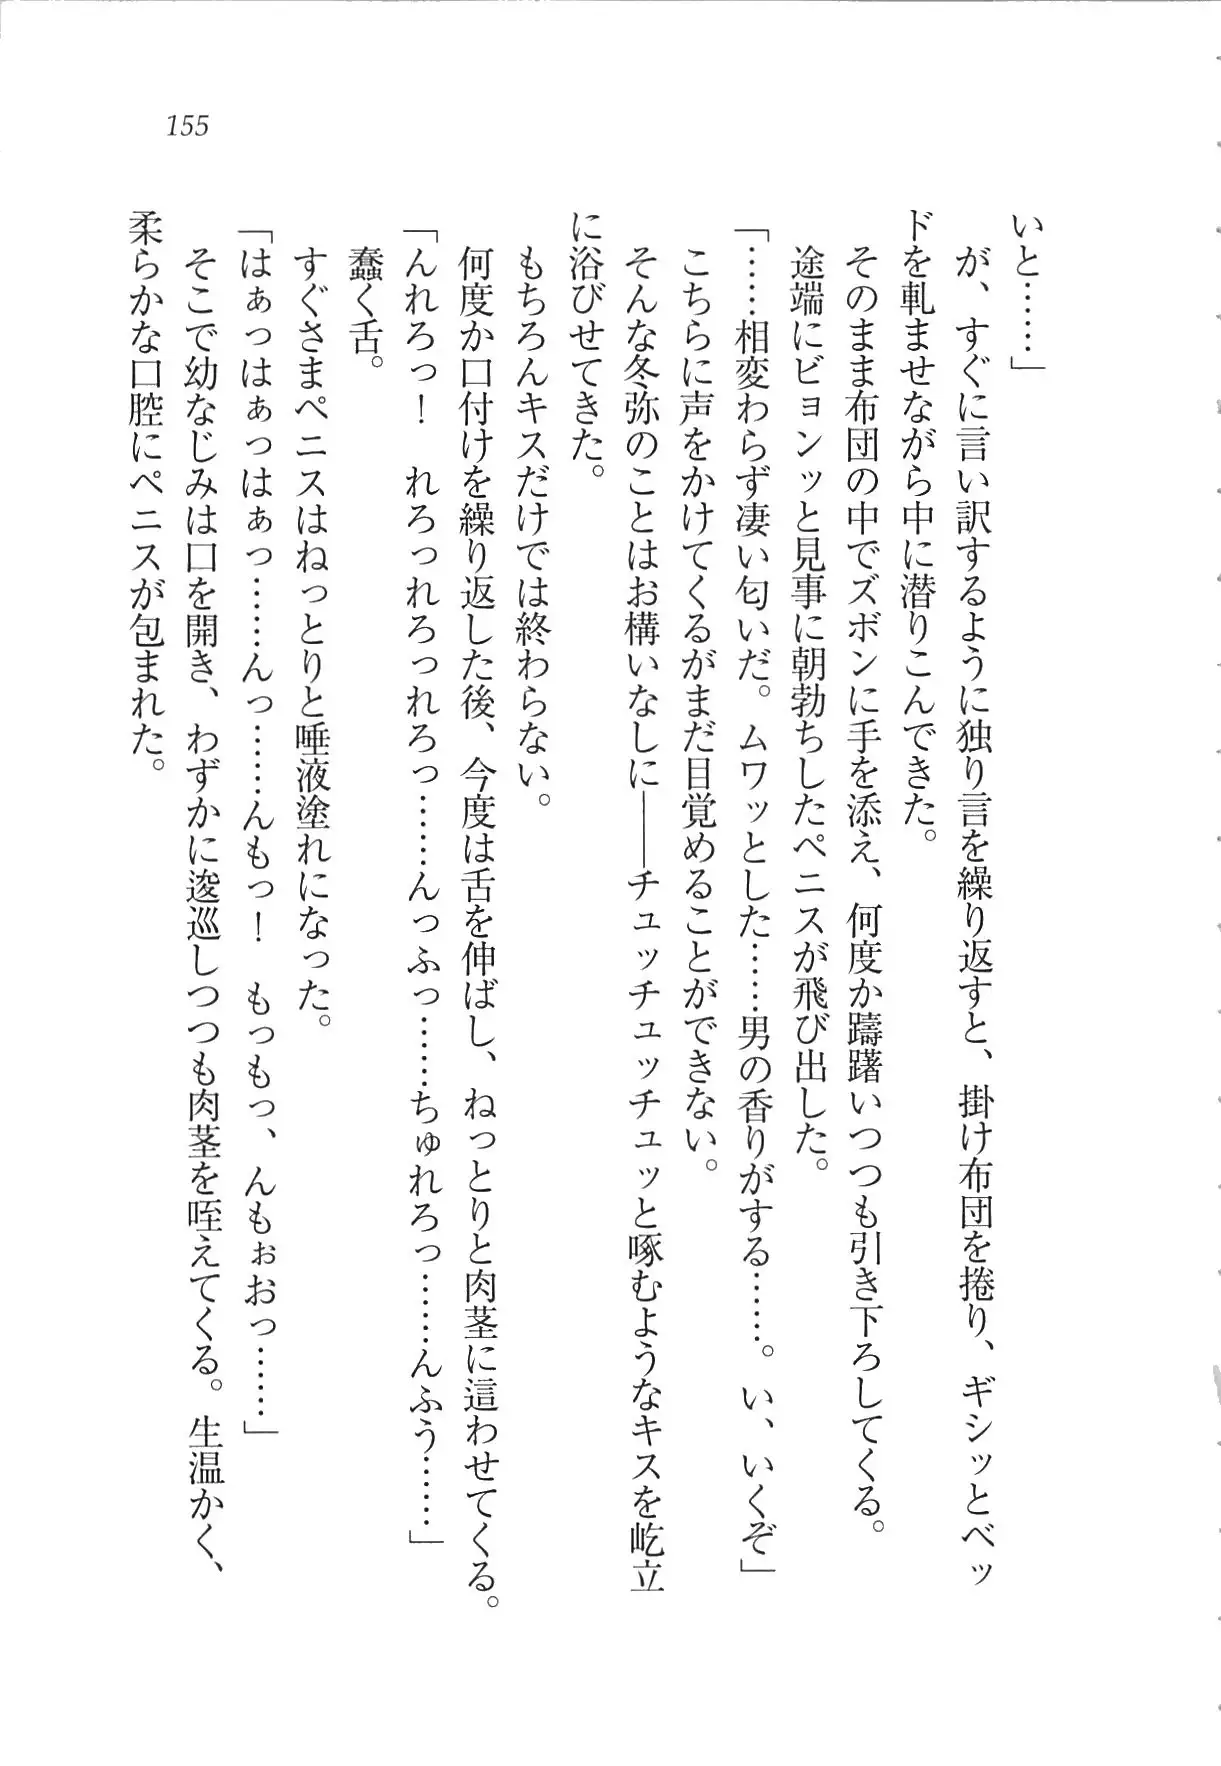 155
いと……」
が、すぐに言い訳するように独り言を繰り返すと、掛け布団を捲り、ギシッとベッ
ドを軋ませながら中に潜りこんできた。
そのまま布団の中でズボンに手を添え、何度か躊躇いつつも引き下ろしてくる。
途端にビョンッと見事に朝勃ちしたペニスが飛び出した。
「……相変わらず凄い匂いだ。ムワッとした……男の香りがする……。い、いくぞ」
こちらに声をかけてくるがまだ目覚めることができない。
そんな冬弥のことはお構いなしに――チュッチュッチュッと啄むようなキスを屹立
に浴びせてきた。
もちろんキスだけでは終わらない。
何度か口付けを繰り返した後、今度は舌を伸ばし、ねっとりと肉茎に這わせてくる。
「んれろっ！　れろっれろっれろっ………んっふっ……ちゅれろっ………んふう……」
蠢く舌。
すぐさまペニスはねっとりと唾液塗れになった。
「はぁっはぁっはぁっ………んっ………んもっ！　もっもっ、んもぉおっ……」
そこで幼なじみは口を開き、わずかに逡巡しつつも肉茎を咥えてくる。生温かく、
柔らかな口腔にペニスが包まれた。